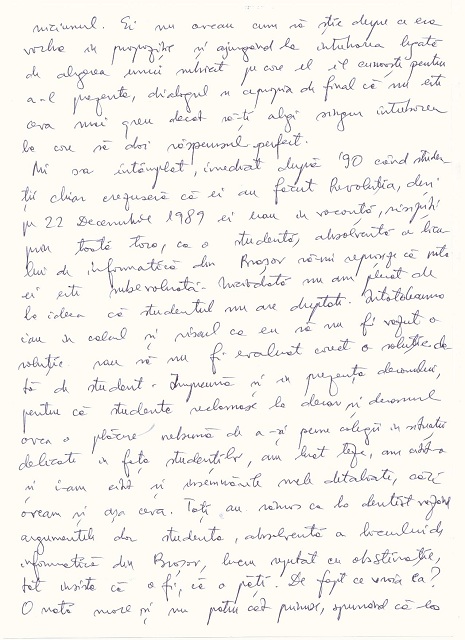 niciunul. Ei nu aveau cum să știe despre ce era
vorba în propoziție și ajungând la întrebarea legată
de alegerea unui subiect pe care el îl cunoști pentru
a-l prezenta, dialogul a
ceva mai greu decât să-ți alegi singur întrebarea
la care să dai răspunsul perfect.
Mi s-a întâmplat, imediat după '90 când studen-
ții chiar crezuseră că ei au făcut Revoluția, deși
pe 22 Decembrie 1989 ei erau în vacanță, risipiți
prin toată țara, ca o studentă, absolventă a lice-
ului de informatică din Brașov să-mi reproșeze că nota
ei este subevaluată. Niciodată nu am plecat de
la ideea că studentul nu are dreptate. Întotdeauna
iau în calcul și riscul ca eu să nu fi văzut o
soluție sau să nu fi evaluat corect o soluție da-
tă de student. Împreună și în prezența decanului,
pentru că studenta reclamase la decan și decanul
avea o plăcere nebună de a-și pune colegii în situații
delicate în fața studenților, am luat teza, am citit-o
și i-am citit și însemnările mele detaliate, căci
aveam și așa ceva. Toți au rămas ca la dentist văzând
argumentele dar studenta, absolventă a liceului de
informatică din Brașov, lucru repetat cu obstinație,
tot insista că o fi, că o păți. De fapt ce vroia ea?
O notă mare și nu putea cât primise, spunând că la